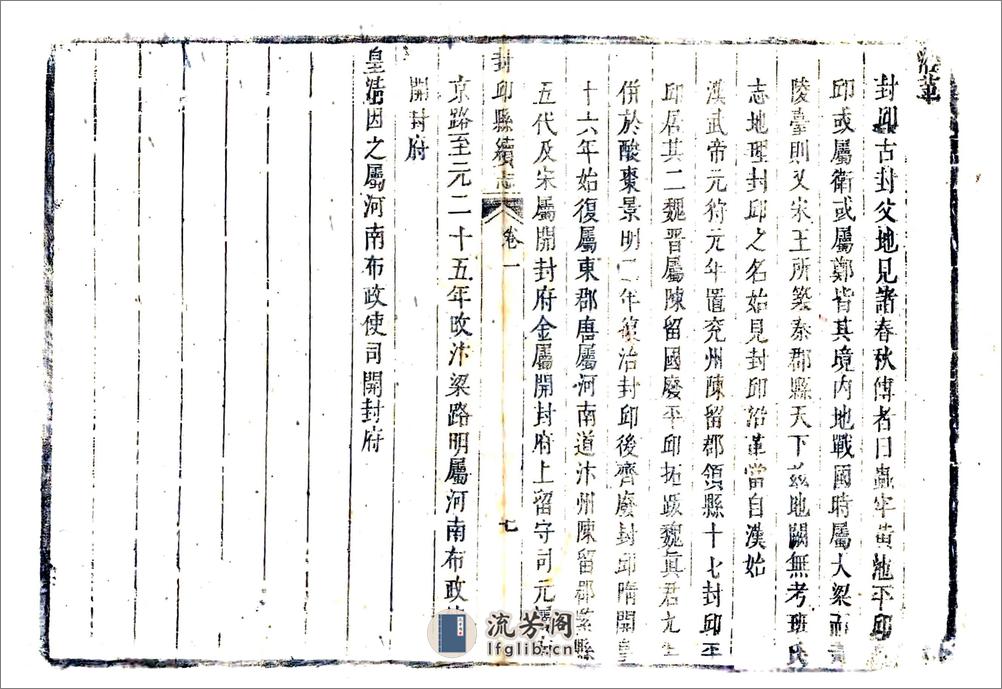 沿革
封邱古封父地見諸春秋傳者曰蟲牢黃池平邱
邱或屬衛或屬鄭皆其境內地戰國時屬大梁而青
陵臺則又宋王所築秦郡縣天下茲地闕無考班氏
志地理封邱之名始見封邱沿革當自漢始
漢武帝元狩元年置兖州陳留郡領縣十七封邱平
邱居其二魏晉屬陳留國廢平邱拓跋魏真君九年
併於酸棗景明二年復治封邱後齊廢封邱隋開皇
十六年始復屬東郡唐屬河南道汴州陳留郡緊縣
五代及宋屬開封府金屬開封府上留守司元屬
封邱縣續志 卷一 七
京路至元二十五年改汴梁路明屬河南布政
開封府
皇清因之屬河南布政使司開封府
流芳阁
lfglib.cn